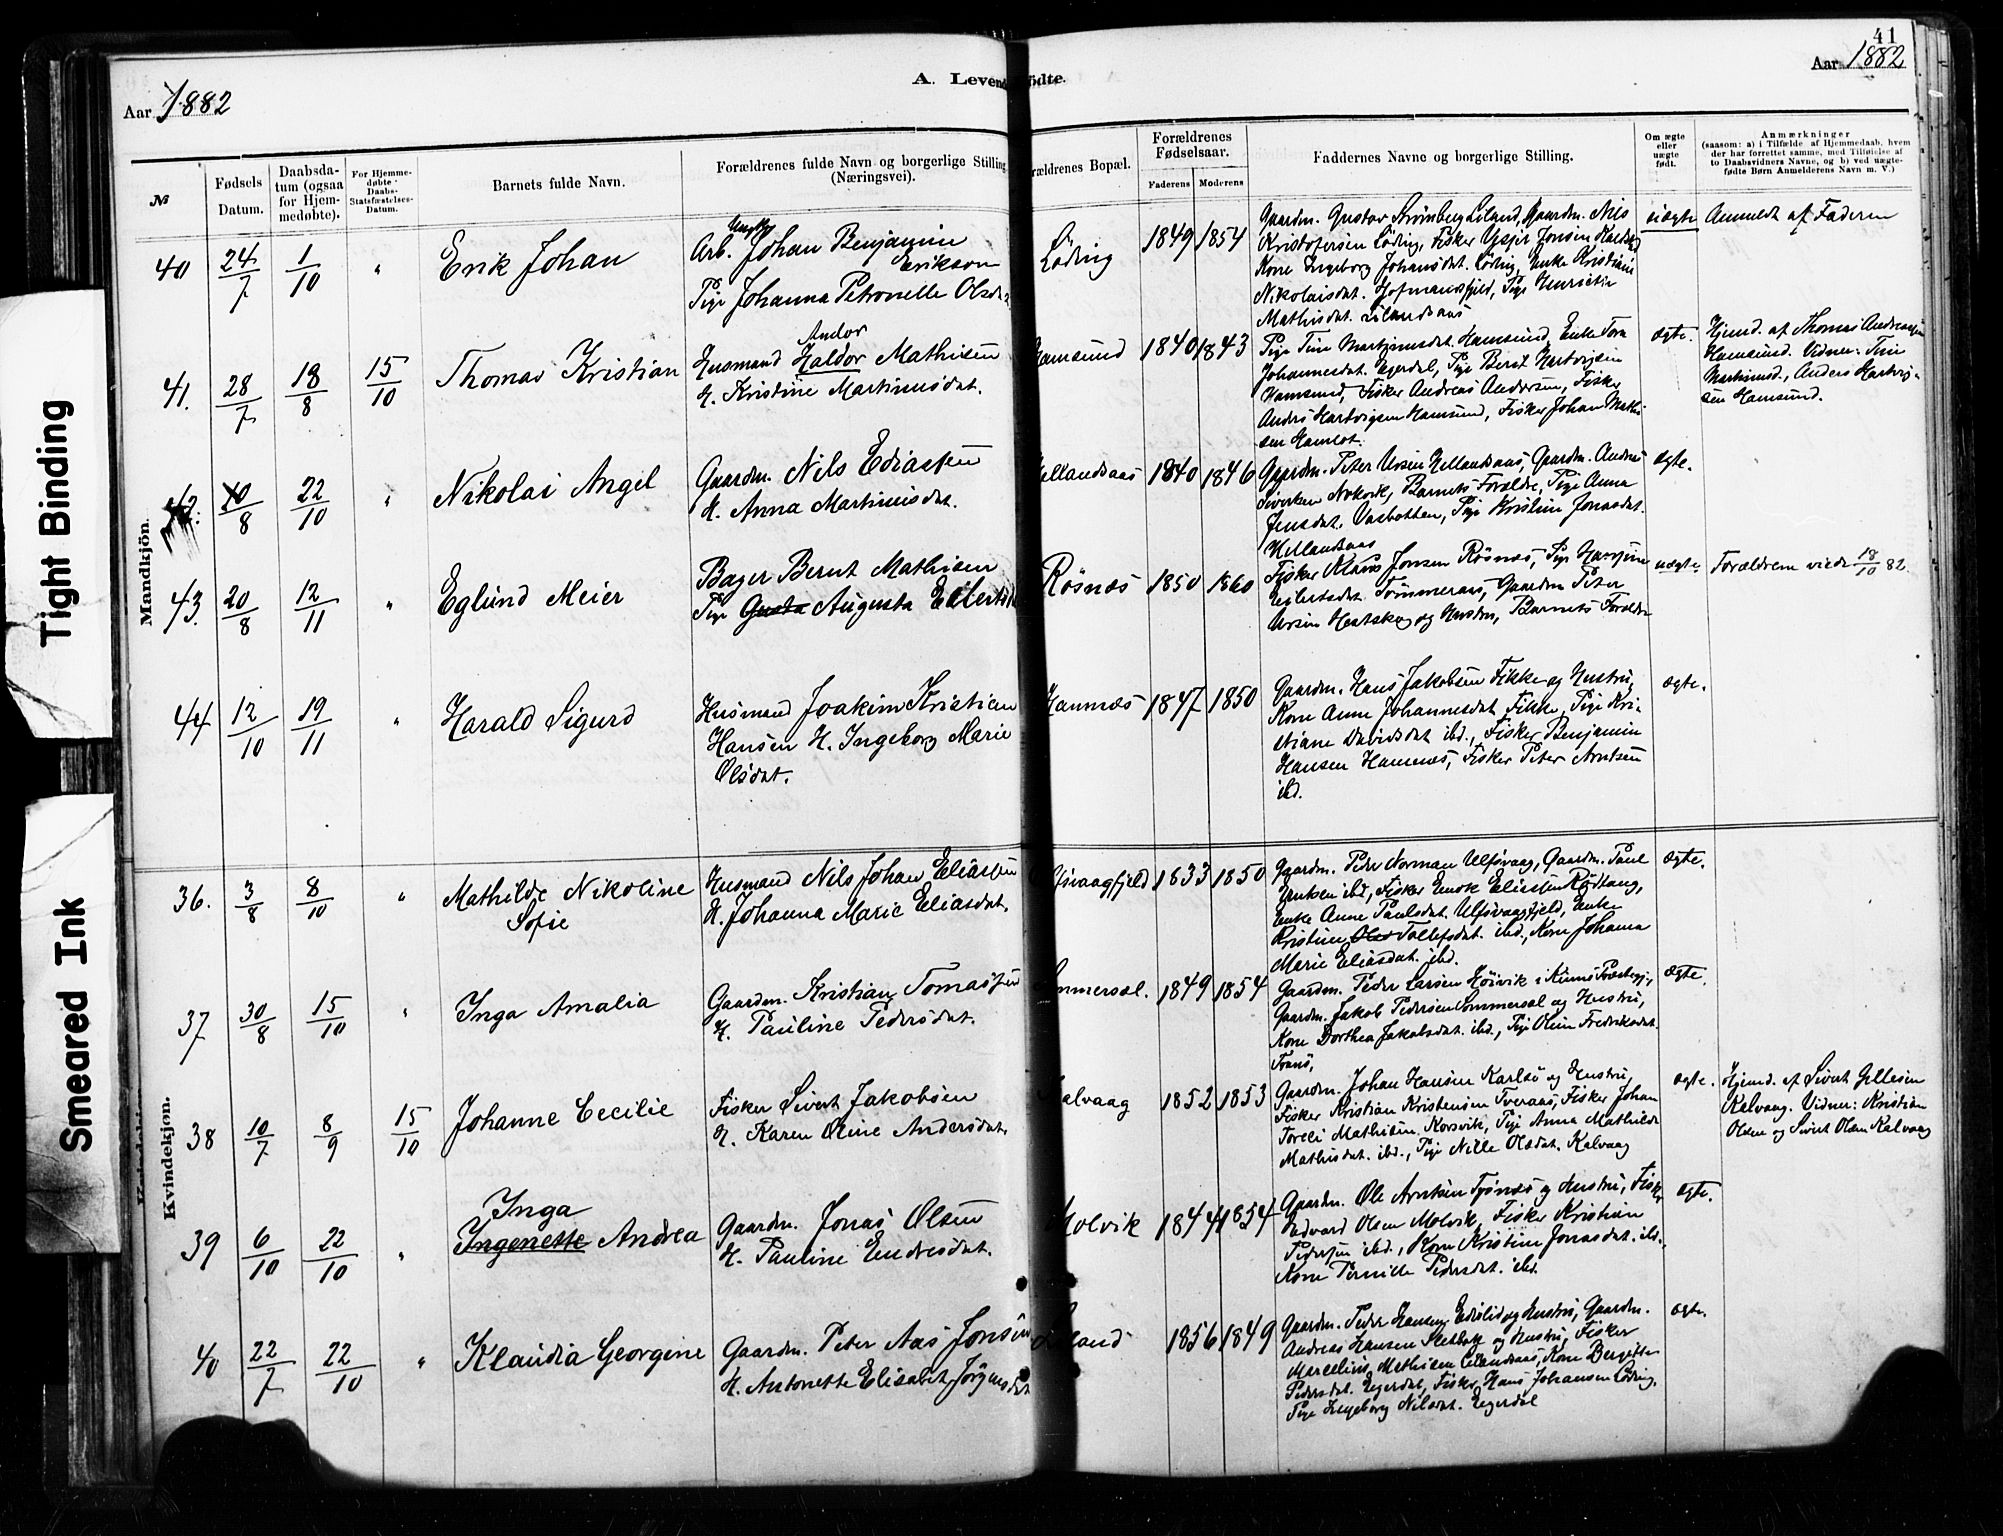 Tight Binding
Smeared Ink
41
Aar 1882
A. Levendefødte.
Aar 1882
№
Fødsels Datum.
Daabsdatum (ogsaa for Hjemmedøbte).
For Hjemmedøbte Daabs-Statsfæstelses-Datum.
Barnets fulde Navn.
Forældrenes fulde Navn og borgerlige Stilling (Næringsvei).
Forældrenes Bopæl.
Forældrenes Fødselsaar.
Faderens Moderens
Faddernes Navne og borgerlige Stilling.
Om ægte eller uægte født.
Anmærkninger
(saasom: a) i Tilfælde af Hjemmedaab, hvem
der har forrettet samme, med Tilføielse af
to Daabsvidners Navne, og b) ved uægte-
fødte Børn Anmelderens Navn m. V.)
Mandkjön.
40 24/7 1/10 " Erik Johan
Ungk.
Arb. Johan Benjamin
Erikson
Pige Johanna Petronelle Olsd
Löding 1849 1854
Gaardm. Gustav Strömberg Liland, Gaardm. Nils
Kristofersen Löding, Fisker Jonsen
Kone Ingeborg Johansdat. Löding, Enke Kristiane
Nikolaisdat. Hofmansfjeld, Pige Henriette
Mathisdat. Lilandsaas
uægte Anmeldt af Faderen
41. 28/7 18/8 15/10 Thomas Kristian
Andor
Husmand Haldor Mathisen
H. Kristine Martinusdat.
Hamsund 1840 1843
Pige Tine Martinusdat. Hamsund, Enke
Johannesdat. Egerdal, Pige Berit Hartvigsen
Hamsund, Fisker Andreas Andersen, Fisker
Anders Hartvigsen Hamsund, Fisker Johan Mathi-
sen Hamsot.
ægte.
Hjemd. af Thomas Andreassen
Hamsund. Vidner: Tine
Martinusd., Anders Hartvig-
sen Hamsund.
42. 10/8 22/10 " Nikolai Angel
Gaardm. Nils Ediassen
H. Anna Martinusdat.
Hellandsaas 1840 1846
Gaardm. Peter Ursin Hellandsaas, Gaardm. Andreas
Sivertsen, Barnets Forældre, Pige Anna
Jensdat. Vasbotten, Pige Kristine Jonasdat.
Hellandsaas
ægte.
43. 20/8 12/11 " Eglund Meier
Bager Bernt Mathisen
Pige Gusta Augusta Eilertsd
Rösnæs 1850 1860
Fisker Klaus Jonsen Rösnæs, Pige
Eilertsdat. Tömmeraas, Gaardm. Peter
Ursin og Hustru, Barnets Forældre
uægte. Forældrene viede 18/10 82
44 12/10 19/11 " Harald Sigurd
Husmand Joakim Kristian
Hansen H. Ingeborg Marie
Olsdat.
Hamnæs 1847 1850
Gaardm. Hans Jakobsen Fikke og Hustru,
Kone Anne Johannesdat Fikke, Pige Kri-
stiane Davidsdat ibd., Fisker Benjamin
Hansen Hamnæs, Fisker Peter Arntsen
ibd.
ægte.
Kvindekjön.
36. 3/8 8/10 " Mathilde Nikoline
Sofie
Husmand Nils Johan Eliassen
H. Johanna Marie Eliasdat.
Ulfsvaagfjeld 1833 1850
Gaardm. Peder Norman Ulfsvaag, Gaardm. Paul
ibd, Fisker Enok Eliassen Rödtang,
Enke Anne Paulsdat. Ulfsvaagfjeld, Enke
Kristine Tollefsdat. ibd., Kone Johanna
Marie Eliasdat. ibd.
ægte.
37 30/8 15/10 " Inga Amalia
Gaardm. Kristian Tomassen
H. Pauline Pedersdat.
Sommersel. 1849 1854
Gaardm. Peder Larsen Höivik i
Gaardm. Jakob Pedersen Sommersel og Hustru,
Kone Dorthea Jakobsdat. ibd., Pige Oline Fredriksdat.
Tranö,
ægte.
38 10/7 8/9 15/10 Johanne Cecilie
Fisker Sivert Jakobsen
H. Karen Oline Andersdat.
Kalvaag 1852 1853
Gaardm. Johan Hansen Karlsö og Hustru,
Fisker Kristian Kristensen Tveraas, Fisker Johan
Toreli Mathisen Korsvik, Pige Anna Mathilde
Mathisdat. ibd., Pige Nille Olsdat. Kalvaag
ægte.
Hjemd. af Sivert Jellesen
Kalvaag. Vidner: Kristian
Olsen og Sivert Olsen Kalvaag
39 6/10 22/10 "
Inga
Ingenette Andrea
Gaardm. Jonas Olsen
H. Pauline Endresdat.
Molvik 1844 1854
Gaardm. Ole Arntsen Tysnæs og Hustru, Fisker
Edvard Olsen Molvik, Fisker Kristian
Pedersen ibd., Kone Kristine Jonasdat. ibd.,
Kone Pernille Pedersdat. ibd.
ægte.
40 22/7 22/10 " Klaudia Georgine
Gaardm. Peter Aas Jonsen
H. Antonette Elisabet Jörgensdat
Liland 1856 1849
Gaardm. Peder Hansen og Hustru, Gaardm.
Andreas Hansen og Hustru, Fisker
Marcelius Mathisen Lilandsaas, Kone Bergitte
Pedersdat. Egerdal, Fisker Hans Johansen Löding,
Pige Ingeborg Nilsdat. Egerdal
ægte.